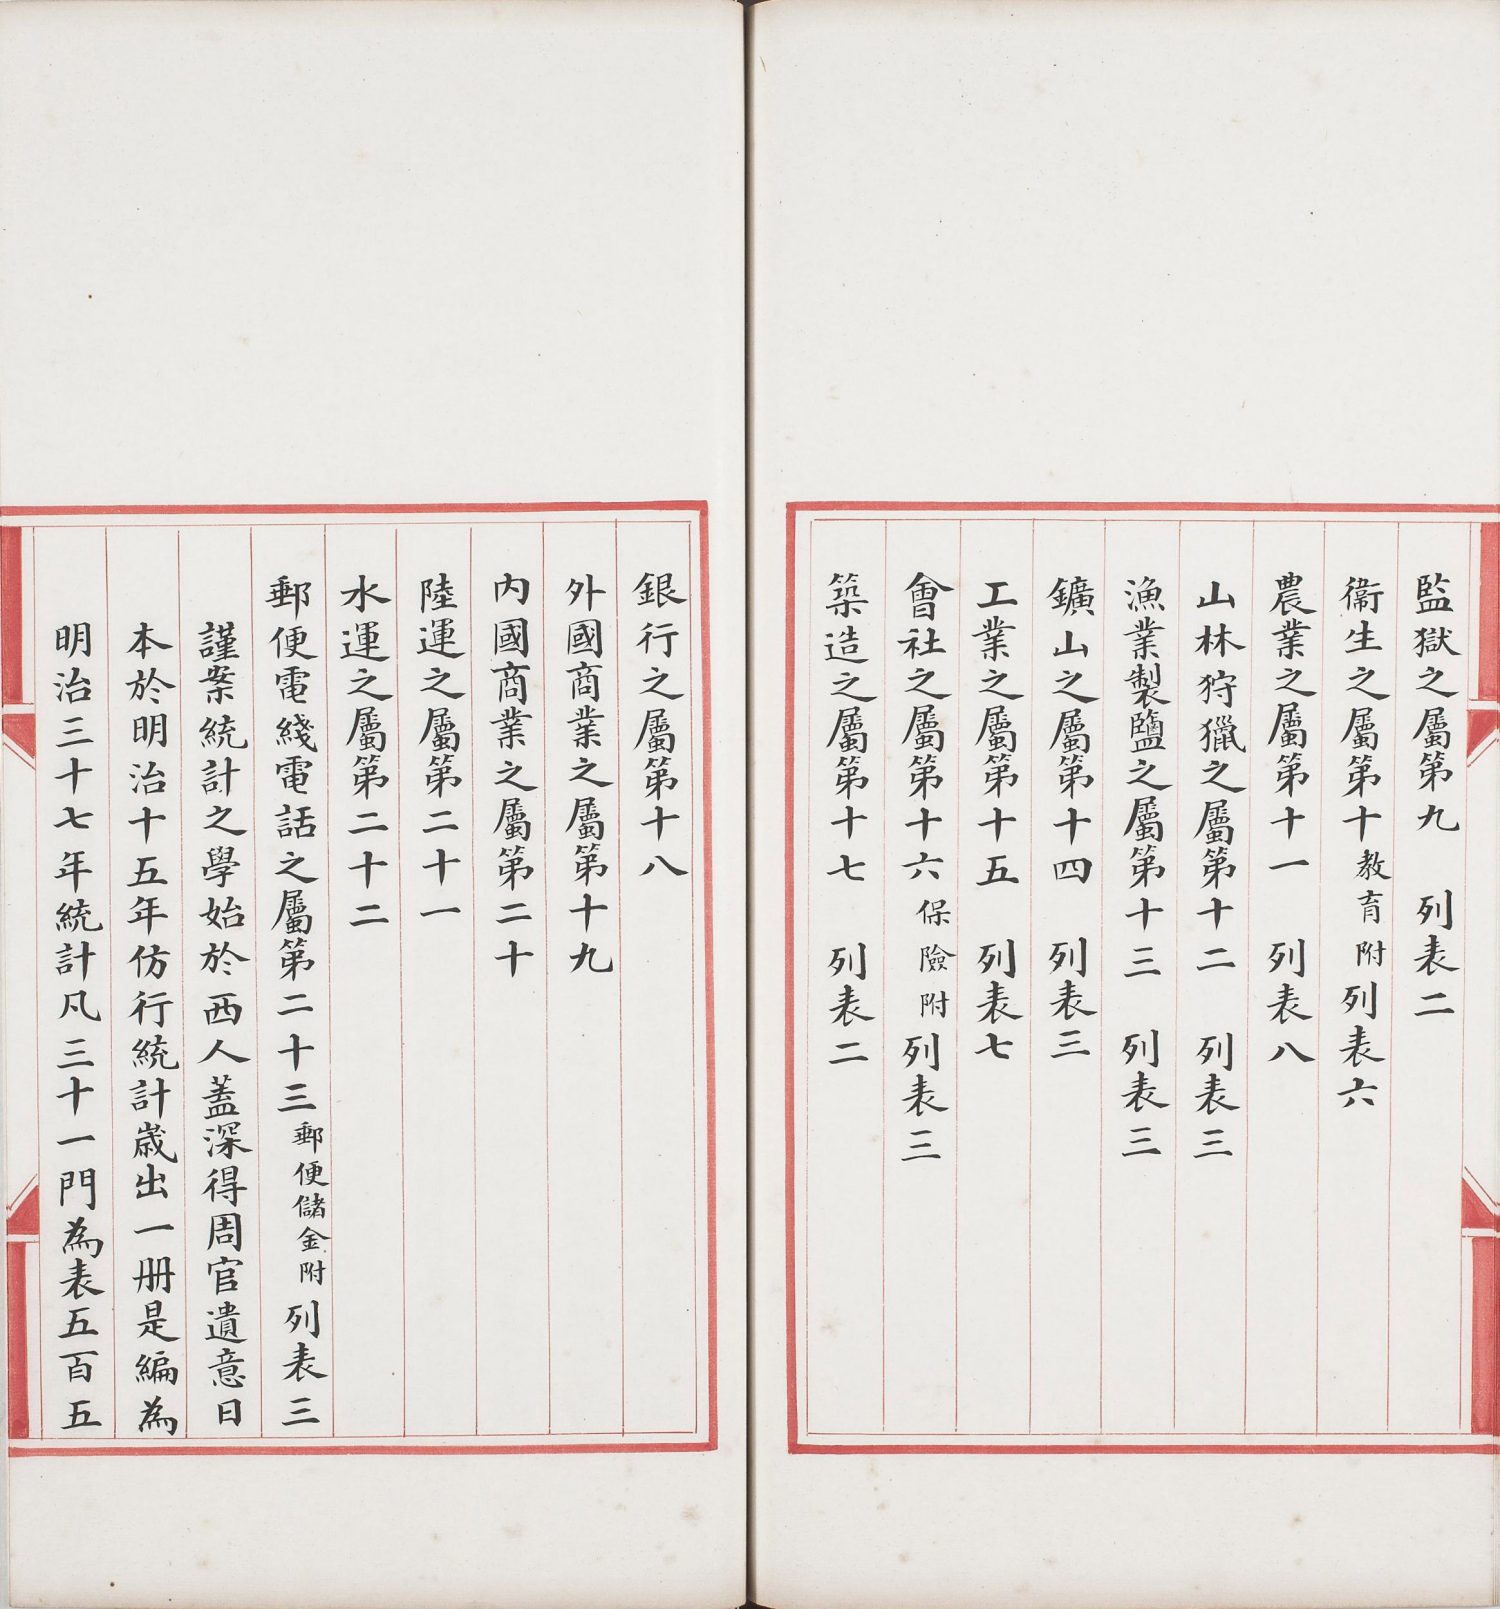 監獄之屬第九　列表二
衞生之屬第十教育附列表六
農業之屬第十一　列表八
山林狩獵之屬第十二　列表三
漁業製鹽之屬第十三　列表三
鑛山之屬第十四　列表三
工業之屬第十五　列表七
會社之屬第十六保險附列表三
築造之屬第十七　列表二
銀行之屬第十八
外國商業之屬第十九
内國商業之屬第二十
陸運之屬第二十一
水運之屬第二十二
郵便電綫電話之屬第二十三郵便儲金附列表三
謹案統計之學始於西人蓋深得周官遺意日
本於明治十五年仿行統計歲出一册是編為
明治三十七年統計凡三十一門為表五百五